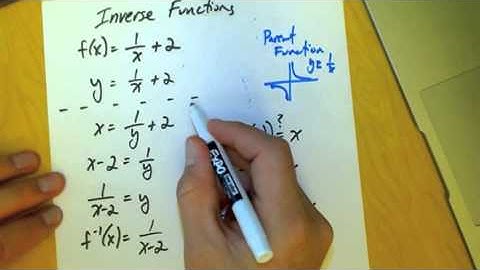 Inverse Functions
f(x) = 1/x + 2
y = 1/x + 2
x = 1/y + 2
x-2 = 1/y
1/(x-2) = y
f⁻¹(x) = 1/(x-2)
Parent
Function
y = 1/x
) ?= x
EXPO